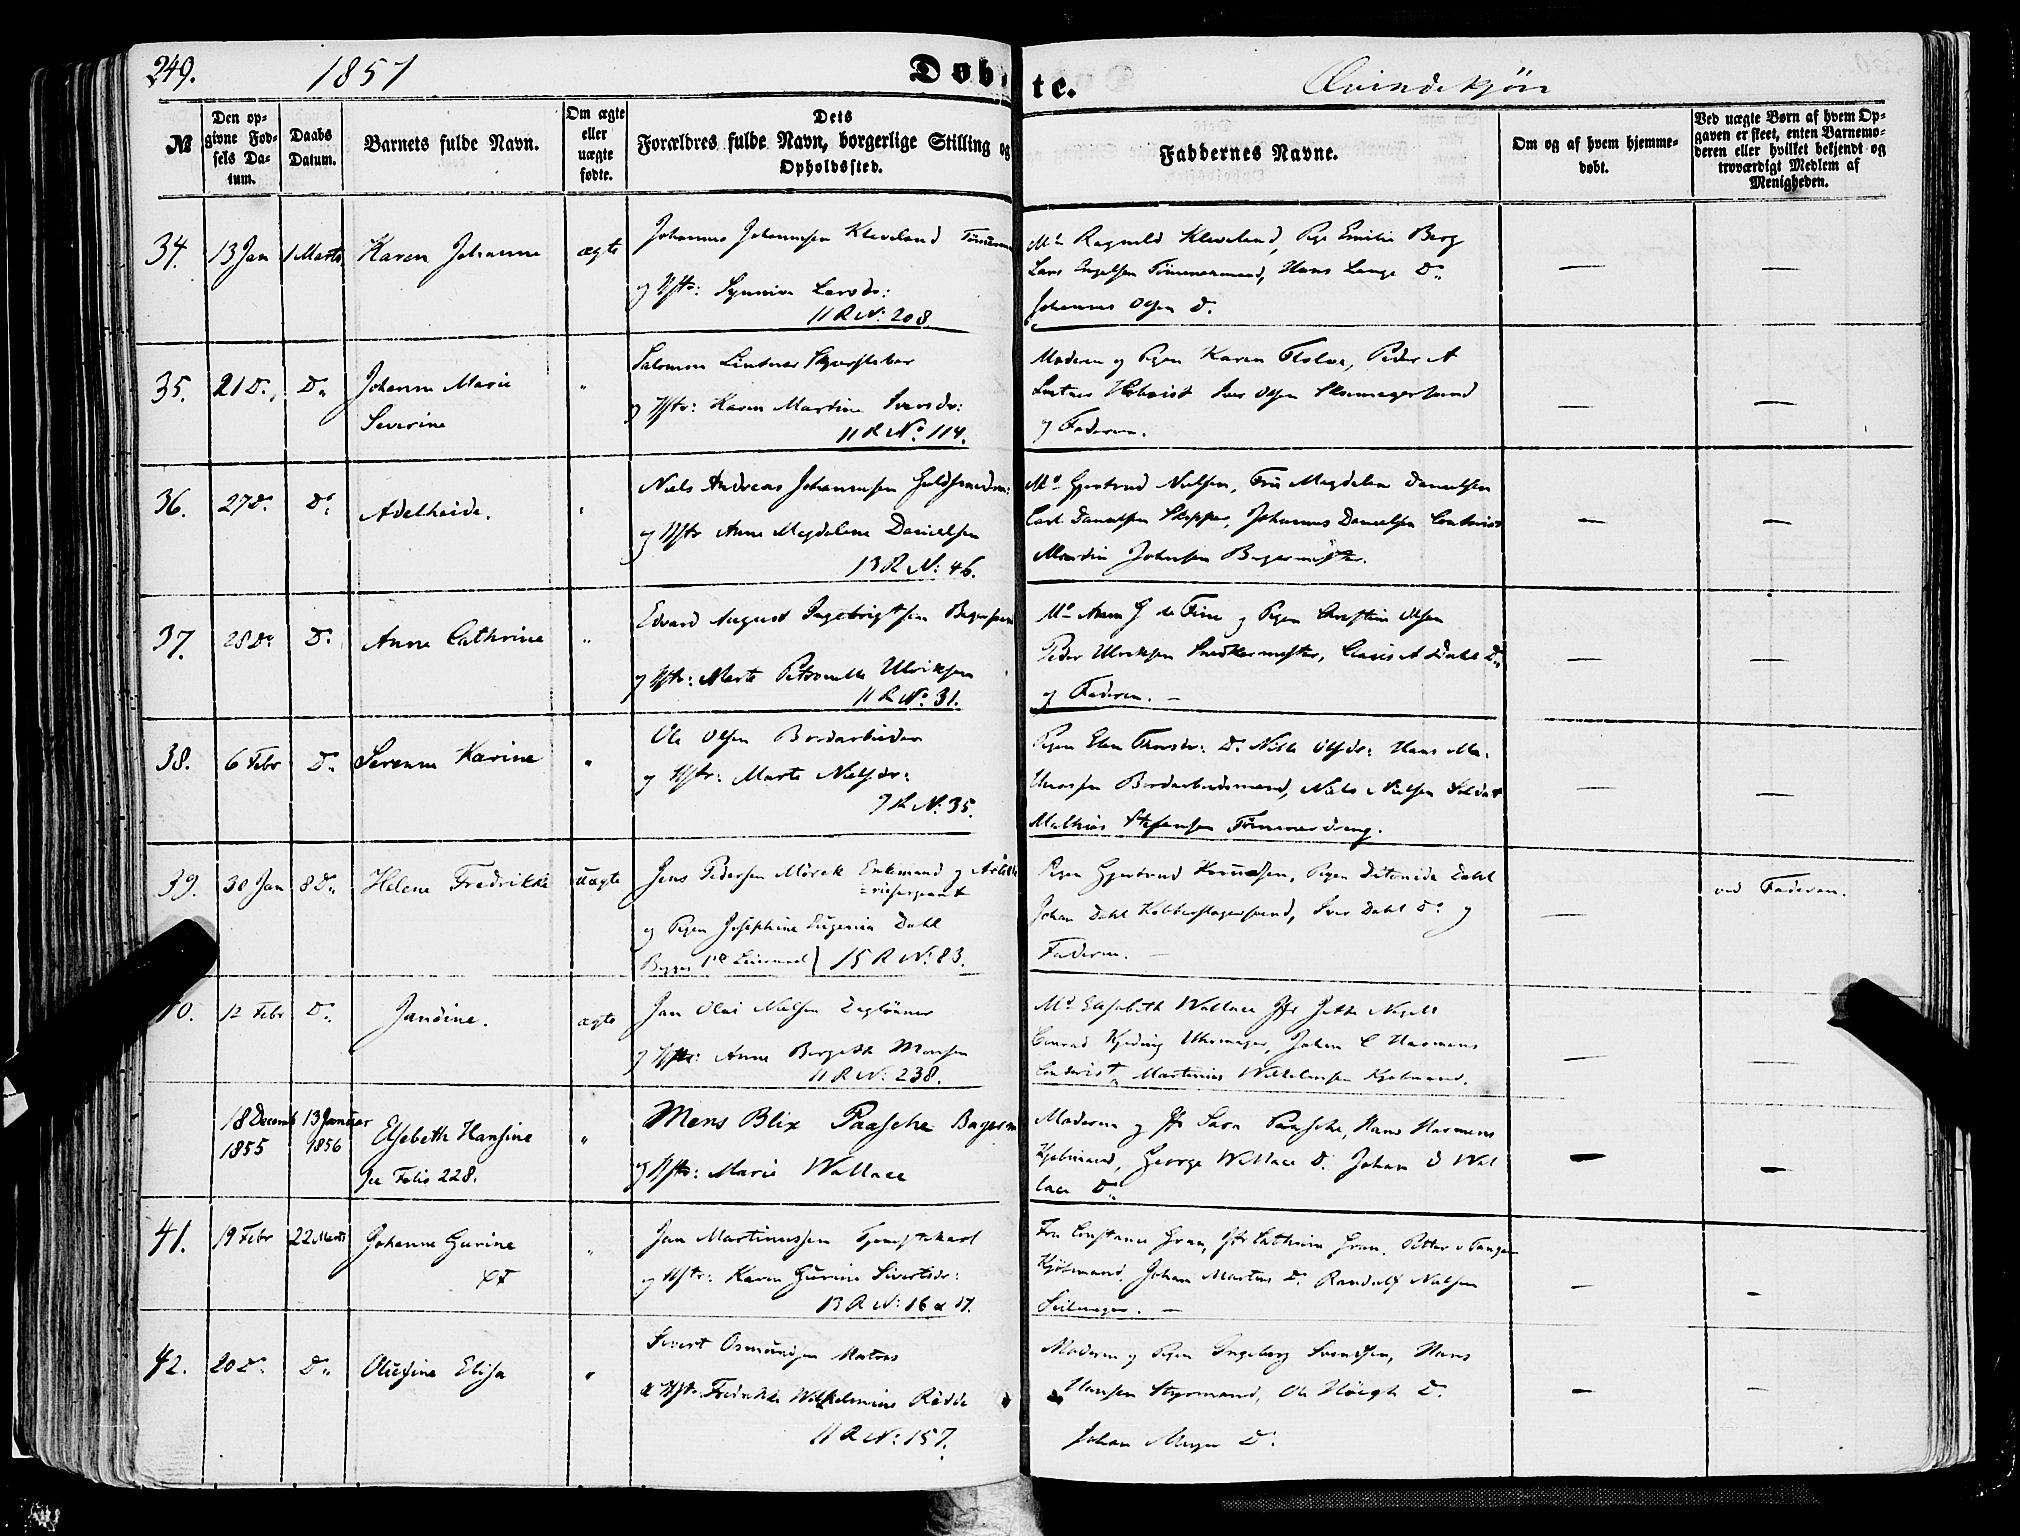 249.
1857
Døbte.
Qvindekjøn
№
Den op-
givne Fød-
sels Da-
tum.
Daabs
Datum.
Barnets fulde Navn.
Om ægte
eller
uægte
fødte.
Dets
Forældres fulde Navn, borgerlige Stilling og
Opholdssted.
Faddernes Navne.
Om og af hvem hjemme-
døbt.
Ved uægte Børn af hvem Op-
gaven er skeet, enten Barnemo-
deren eller hvilket bekjendt og
troværdigt Medlem af
Menigheden.
34. 13 Jan 1 Marts Karen Johanne ægte
Johannes Johannesen Kleveland
og Hstr: Synnive Larsdr:
11 R N: 208.
Ragnild Kleveland, Pige Emilie Berg
Lars Ingelsen Tømmermand, Hans Lange Do
Johannes Olsen D.
— —
35. 21 Do Do Johanne Marie
Severine
"
Salomon Lintner
og Hstr: Karen Martine Iversdr:
11 R No 114.
Moderen og Pigen Karen Peder A
Lintner Iver Olsen Skomagersvend
og Faderen.
— —
36. 27 Do Do Adelheide. "
Niels Andreas Johannesen Guldsmedm:
og Hstr Anne Magdalene Danielsen
13 R N: 46.
Md Gjertrud Nielsen, Fru Magdalene Danielsen
Carl Danielsen Skipper, Johannes Danielsen Contorist
Martin Johnsen Bagermester.
— —
37. 28 Do Do Anne Cathrine "
Edvard August Ingebrigtsen Bagersvend
og Hstr: Marte Petronelle Ulriksen
11 R No: 31.
Md Anna G de Fine og Pigen Christine Olsen
Peder Ulriksen Snedkermester, Claus A Dahl Do
og Faderen. —
— —
38. 6 Febr Do Serenne Karine "
Ole Olsen Bordarbeider
og Hstr: Marte Nielsdr:
7 R N: 35.
Pigen Elen Do Nille Olsdr: Hans Ma-
Bordarbeidsmand, Niels Nielsen Soldat
Mathias Stefansen Tømmerdreng.
— —
39. 30 Jan 8 Do Helene Fredrikke uægte
Jens Pedersen Mörck Enkemand og Artille-
riesergeant
og Pigen Josephine Eugenia Dahl
Begges 1ste Leiermaal) 15 R N: 83.
Pigen Gjertrud Knudsen, Pigen Dahl
Johan Dahl Kobberslagersvend, Iver Dahl Do og
Faderen. —
— ved Faderen.
40. 12 Febr Do Jandine. ægte
Jan Olai Nielsen Dagløner
og Hstr: Anne Bergette Monsen
11 R N: 238.
Md Elisabeth Wallace Jfr Jette Nagell
Conrad Uhrmager, Johan C Harmens
Contorist, Martinus Wilhelmsen Kjøbmand.
— —
18 Decemb
1855
13 Januar
1856
Elsebeth Hansine
see Folio 228.
"
Mens Blix Paasche Bagerm
og Hstr: Marie Wallace
Moderen og Jfr Sara Paasche, Hans Harmens
Kjøbmand, George Wallace D. Johan D Wal
lace Do
— —
41. 19 Febr 22 Marts Johanne Gurine "
Jan Martinussen Tjenestekarl
og Hstr: Karen Gurine Sivertsdr:
13 R N: 16 a 17.
Fru Constance Gran, Jfr Cathrine Gran, Petter v Tangen
Kjøbmand, Johan Martens Do Randulf Nielsen
Seilmager. —
— —
42. 20 Do Do Olufine Elisa "
Sivert Osmundsen Matros
& Hstr: Fredrikke Wilhelmine Rødde
11 R N: 157.
Moderen og Pigen Ingeborg Svendsen, Hans
Hansen Styrmand, Ole Høegh D.
Johan Meyer D.
— —